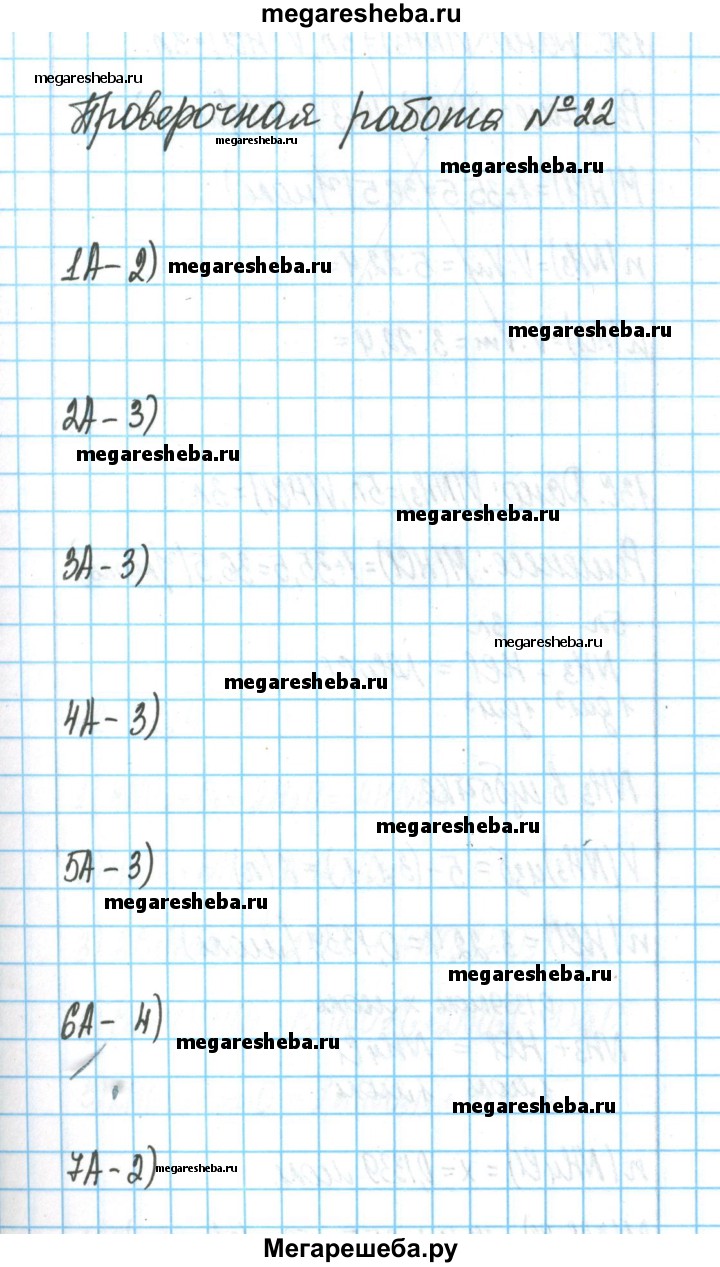 megaresheba.ru
megaresheba.ru
Проверочная работа №22
megaresheba.ru
megaresheba.ru
1А - 2) megaresheba.ru
megaresheba.ru
2А - 3)
megaresheba.ru
megaresheba.ru
3А - 3)
megaresheba.ru
megaresheba.ru
4А - 3)
megaresheba.ru
5А - 3)
megaresheba.ru
megaresheba.ru
6А - 4)
megaresheba.ru
megaresheba.ru
7А - 2) megaresheba.ru
Мегарешеба.ру